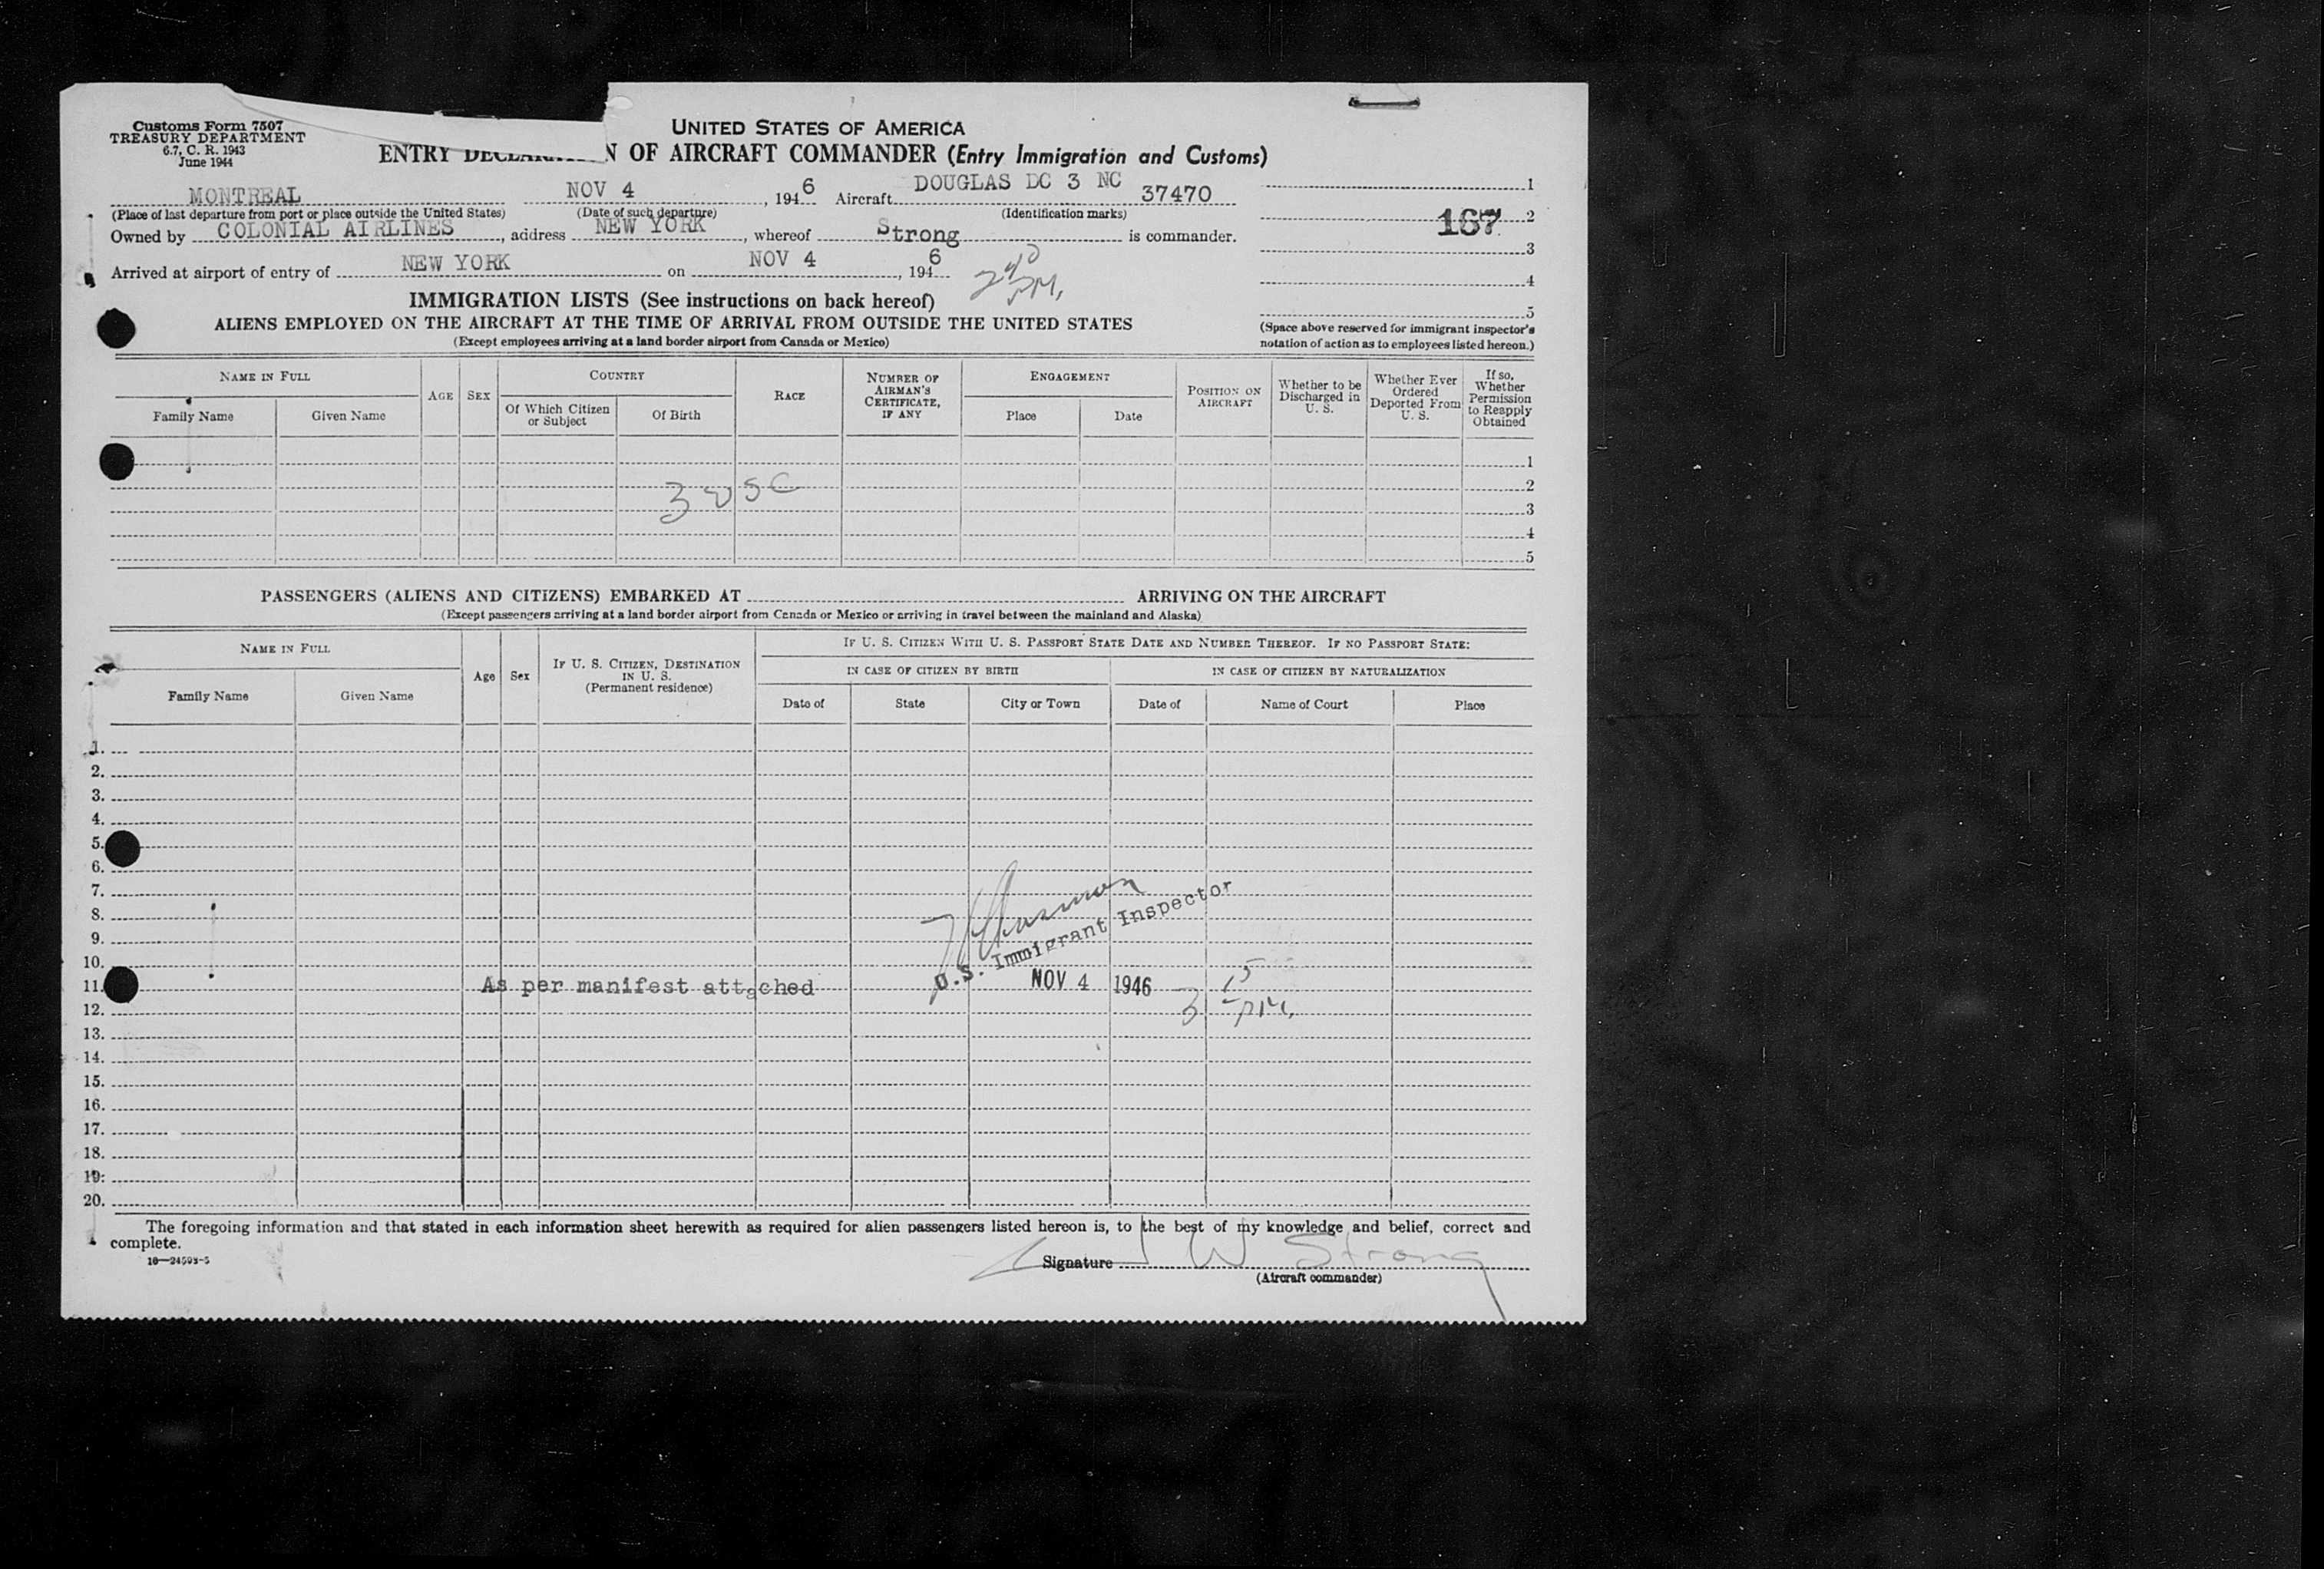 Customs Form 7507
TREASURY DEPARTMENT
6.7, C. R. 1943
June 1944
UNITED STATES OF AMERICA
ENTRY N OF AIRCRAFT COMMANDER (Entry Immigration and Customs)
MONTREAL NOV 4 , 1946 Aircraft DOUGLAS DC 3 NC 37470
(Place of last departure from port or place outside the United States) (Date of such departure) (Identification marks)
Owned by COLONIAL AIRLINES , address NEW YORK , whereof Strong is commander.
Arrived at airport of entry of NEW YORK on NOV 4 , 1946 2 40 PM.
1
167 2
3
4
5
(Space above reserved for immigrant inspector's
notation of action as to employees listed hereon.)
IMMIGRATION LISTS (See instructions on back hereof)
ALIENS EMPLOYED ON THE AIRCRAFT AT THE TIME OF ARRIVAL FROM OUTSIDE THE UNITED STATES
(Except employees arriving at a land border airport from Canada or Mexico)
NAME IN FULL AGE SEX COUNTRY RACE NUMBER OF AIRMAN'S CERTIFICATE, IF ANY ENGAGEMENT POSITION ON AIRCRAFT Whether to be Discharged in U. S. Whether Ever Ordered Deported From U. S. If so, Whether Permission to Reapply Obtained
Family Name Given Name Of Which Citizen or Subject Of Birth Place Date
1
2
3 USC
3
4
5
PASSENGERS (ALIENS AND CITIZENS) EMBARKED AT ARRIVING ON THE AIRCRAFT
(Except passengers arriving at a land border airport from Canada or Mexico or arriving in travel between the mainland and Alaska)
NAME IN FULL Age Sex IF U. S. CITIZEN, DESTINATION IN U. S. (Permanent residence) IF U. S. CITIZEN WITH U. S. PASSPORT STATE DATE AND NUMBER THEREOF. IF NO PASSPORT STATE:
IN CASE OF CITIZEN BY BIRTH IN CASE OF CITIZEN BY NATURALIZATION
Family Name Given Name Date of State City or Town Date of Name of Court Place
1.
2.
3.
4.
5.
6.
7.
8.
9.
10.
U.S. Immigrant Inspector
11. As per manifest attached NOV 4 1946 3 15 PM.
12.
13.
14.
15.
16.
17.
18.
19.
20.
The foregoing information and that stated in each information sheet herewith as required for alien passengers listed hereon is, to the best of my knowledge and belief, correct and
complete.
Signature W Strong
(Aircraft commander)